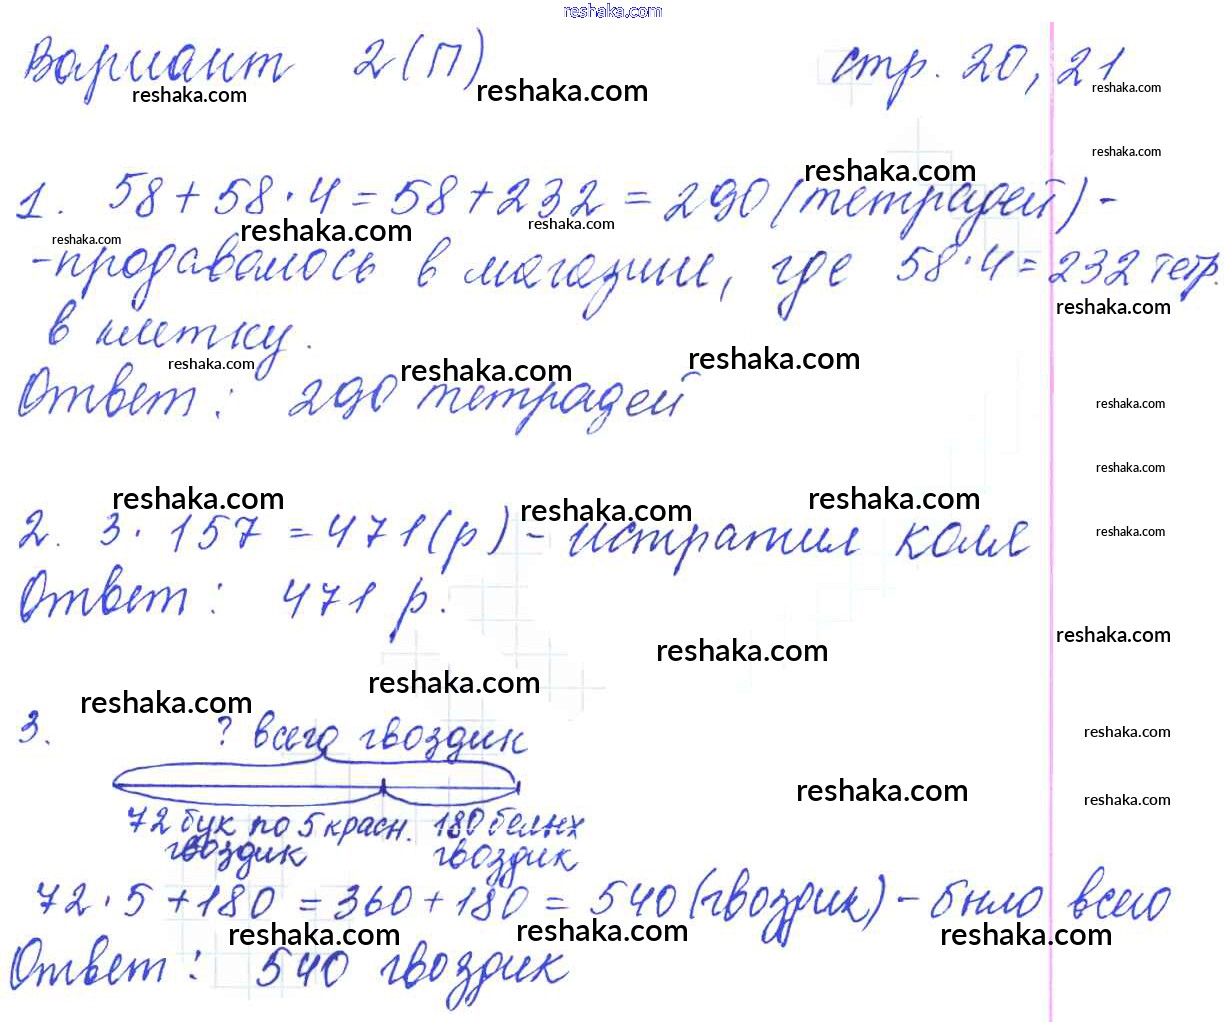 reshaka.com
Вариант 2(П) стр. 20, 21
reshaka.com reshaka.com reshaka.com
reshaka.com
reshaka.com
1. 58 + 58 · 4 = 58 + 232 = 290 (тетрадей) -
reshaka.com reshaka.com reshaka.com
- продавалось в магазин, где 58 · 4 = 232 тетр.
reshaka.com
в клетку.
reshaka.com reshaka.com reshaka.com
Ответ: 290 тетрадей
reshaka.com
reshaka.com
reshaka.com reshaka.com reshaka.com
2. 3 · 157 = 471 (р) - истратил Коля
reshaka.com
Ответ: 471 р.
reshaka.com reshaka.com
reshaka.com
reshaka.com
3. ? всего гвоздик
reshaka.com
reshaka.com reshaka.com
72 бук по 5 красн. 180 белых
гвоздик гвоздик
72 · 5 + 180 = 360 + 180 = 540 (гвоздик) - было всего
reshaka.com reshaka.com reshaka.com
Ответ: 540 гвоздик